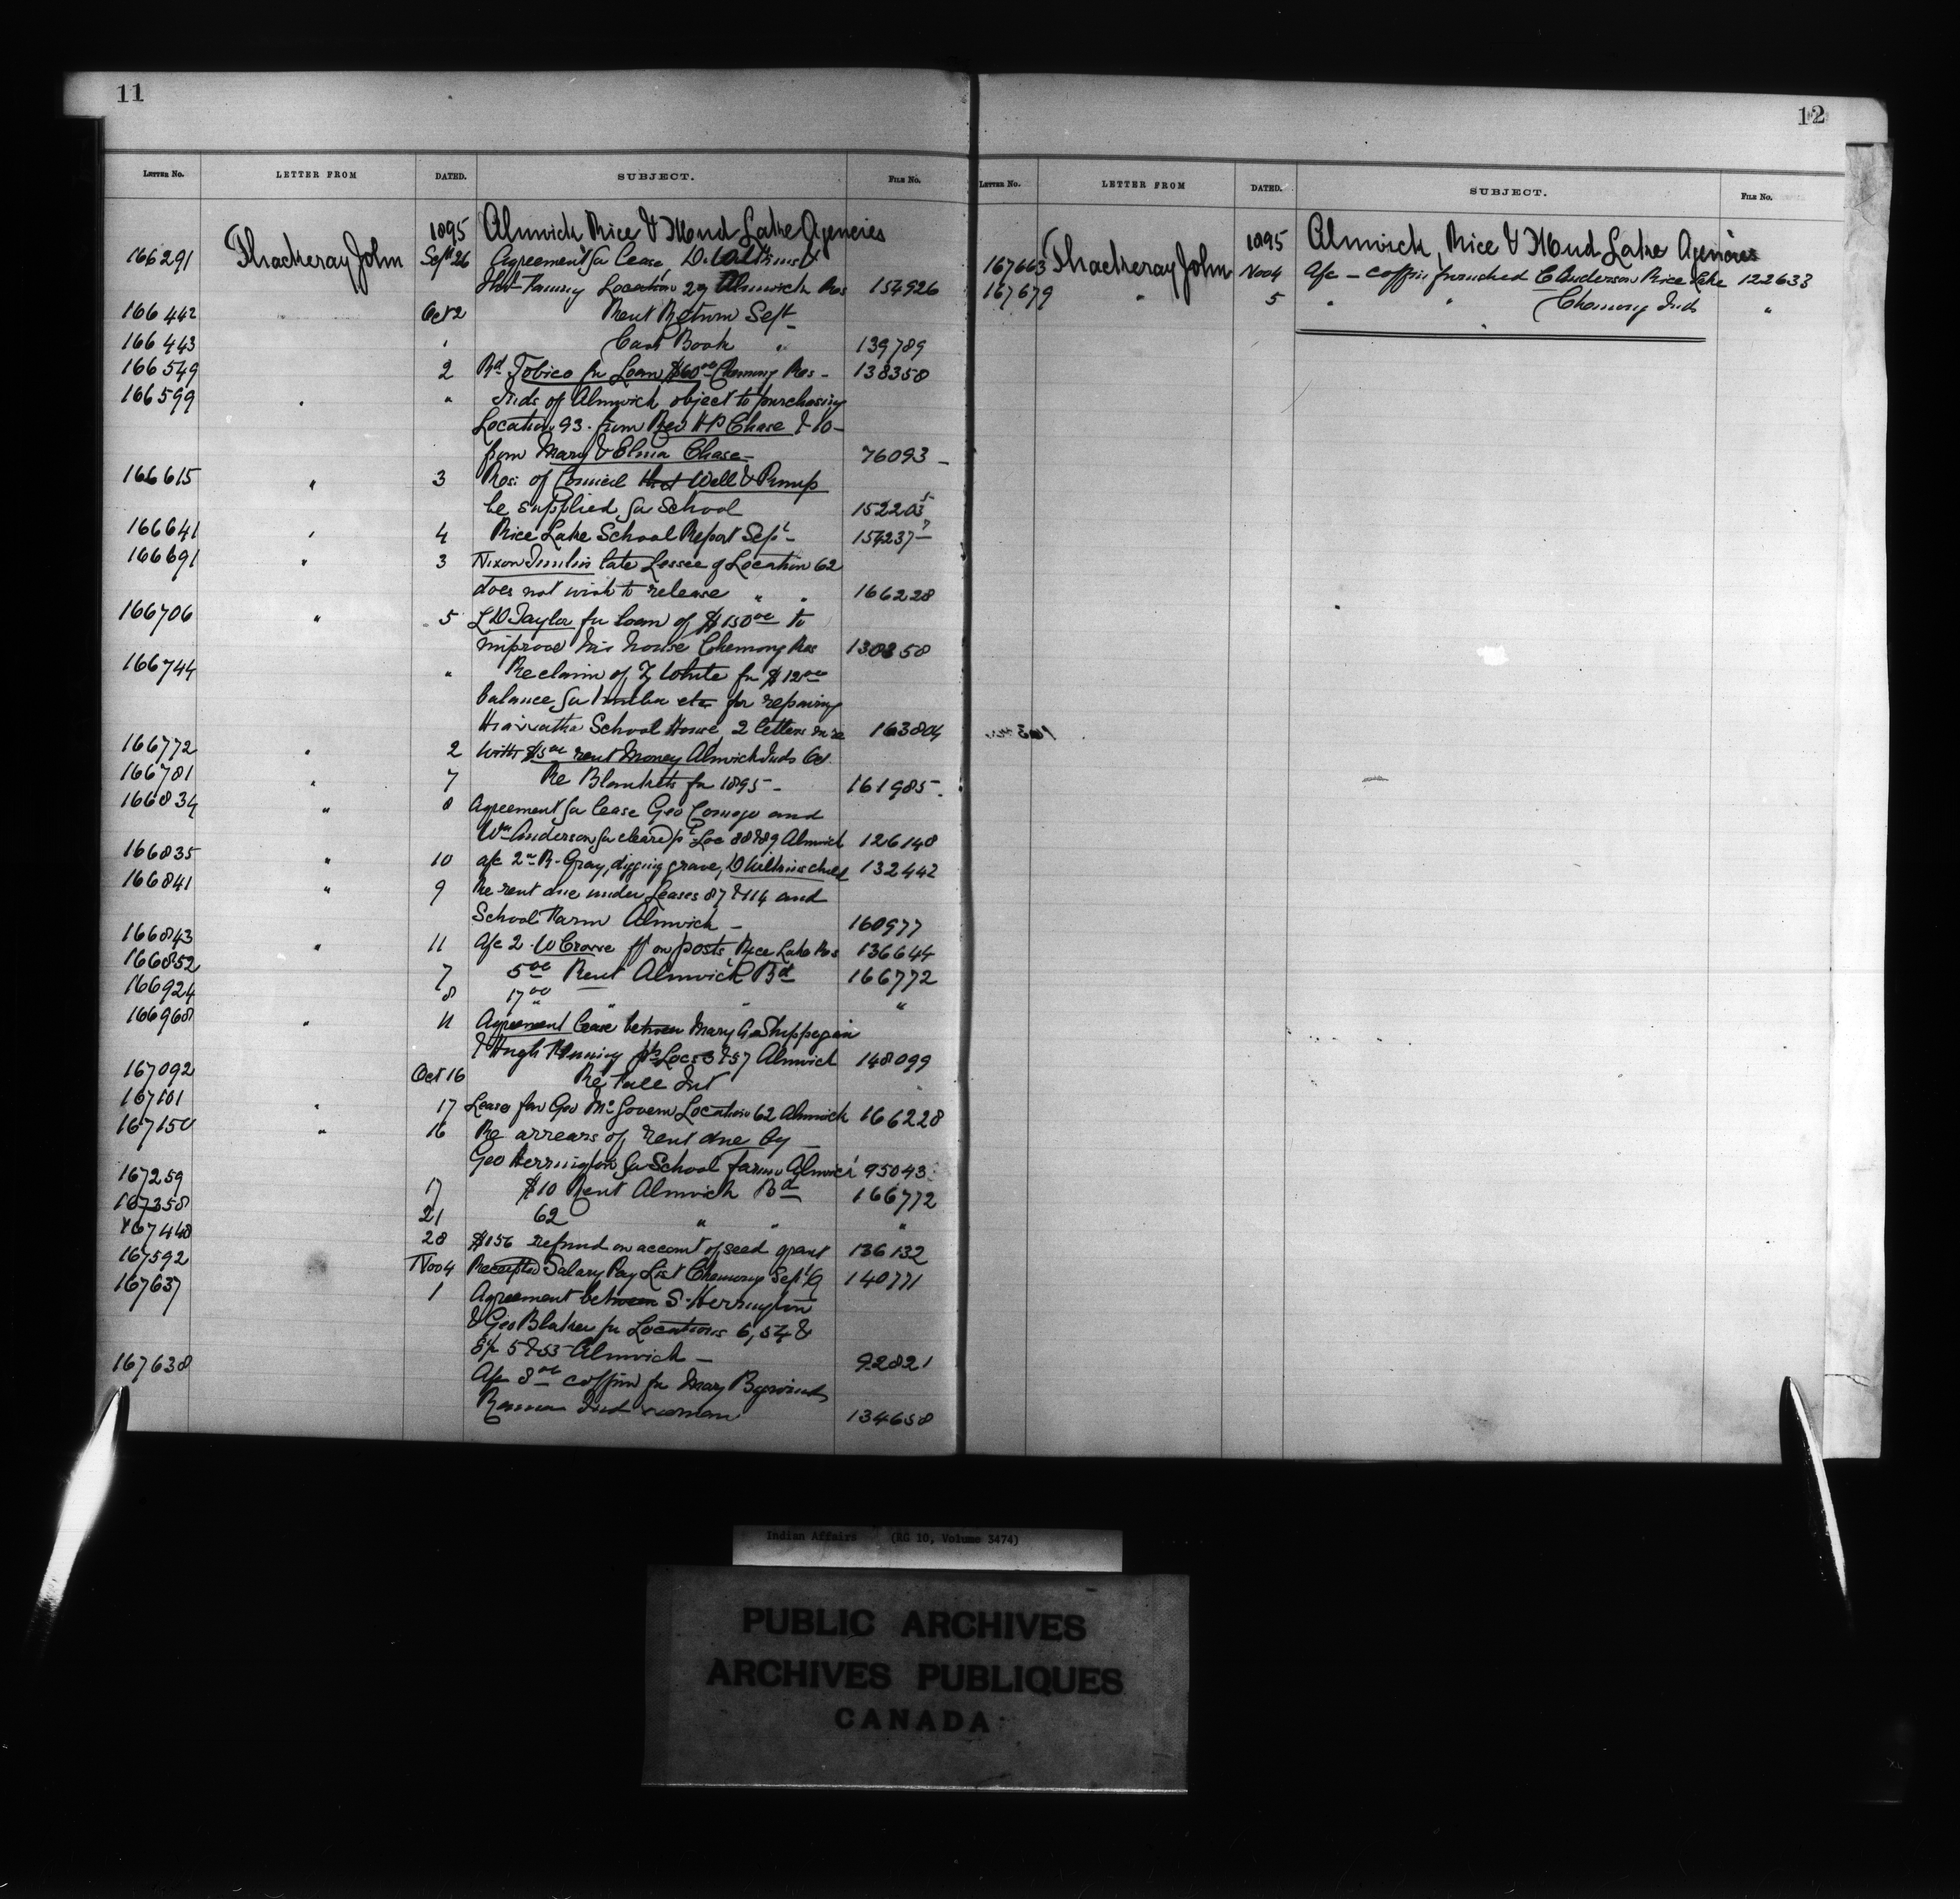 11
LETTER No. LETTER FROM DATED. SUBJECT. FILE No.
1895 Alnwick Rice & Mud Lake Agencies
166291 Thackeray John Sept 26 Agreement for lease, D. Wilkins &
Location 27 Alnwick Res 154926
166442 Oct 2 Rent Return Sept
166443 Cash Book " 139789
166549 2 Rd Tobico for Loan $60 00 Chemong Res - 138350
166599 " " Inds of Alnwick object to purchasing
Location 93 from Rev H P Chase & 10 -
from Mary & Elma Chase - 76093 -
166615 " 3 Res: of Council that Well & Pump
be supplied for School 152203
166641 " 4 Rice Lake School Report Sept - 154237
166691 " 3 Nixon Timlin late Lessee of Location 62
does not wish to release " " 166228
166706 " 5 L D Taylor for loan of $150 00 to
improve his house Chemong Res 138350
166744 " Re claim of White for $12 00
balance for lumber etc for repairing
Hiawatha School House, 2 letters in re 163804
166772 " 2 With $5 00 rent money Alnwick Inds Cd
166781 " 7 Re Blankets for 1895 - 161985 -
166834 " 8 Agreement for lease Geo Comego and
Wm Anderson for cleared pt Loc 88 & 89 Alnwick 126148
166835 " 10 a/c 2 00 R. Gray, digging grave, D Wilkins child 132442
166841 " 9 Re rent due under Leases 87 & 114 and
School Farm Alnwick - 160977
166843 " 11 a/c 2 - W Crowe on posts Rice Lake Res 136644
166852 7 5 00 Rent Alnwick Bd 166772
166924 8 17 00 " " "
166968 " 11 Agreement lease between Mary A Shippegan
& Hugh pts Locs 57 Alnwick 148099
167092 Oct 16 Re
167101 " 17 Lease for Geo McGovern Location 62 Alnwick 166228
167150 " 16 Re arrears of rent due by
Geo Herrington for School farm Alnwick 95043
167259 17 $10 Rent Alnwick Bd 166772
167358 21 62 " " "
167448 28 $156 refund on account of seed grant 136132
167592 Nov 4 Receipted Salary Pay List Chemong Sept Q 140771
167637 1 Agreement between S. Herrington
& Geo Blaker for Locations 6, 54 &
5 & 53 Alnwick - 92821
167638 A/c 8 00 coffin for Mary
Ind woman 134658
12
LETTER No. LETTER FROM DATED. SUBJECT. FILE No.
1895 Alnwick, Rice & Mud Lake Agencies
167663 Thackeray John Nov 4 A/c - coffin furnished C Anderson Rice Lake 122633
167679 " 5 " " Chemong Inds "
Indian Affairs (RG 10, Volume 3474)
PUBLIC ARCHIVES
ARCHIVES PUBLIQUES
CANADA